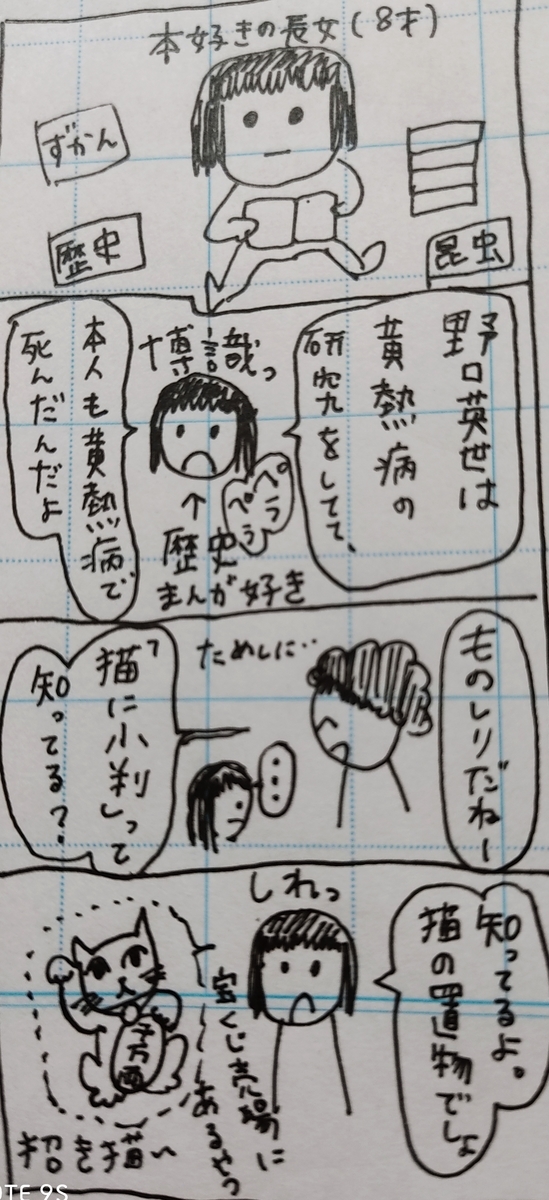 本好きの長女(8才)
ずかん
歴史
昆虫
野口英世は
黄熱病の
研究をしてて、
博識っ
ペラ
ペラ
↑
歴史
まんが好き
本人も黄熱病で
死んだんだよ
ものしりだねー
ためしに‥
「猫に小判」って
知ってる?
知ってるよ。
猫の置物でしょ
しれっ
宝くじ売場に
あるやつ
千万両
招き猫〜
OTE 9S